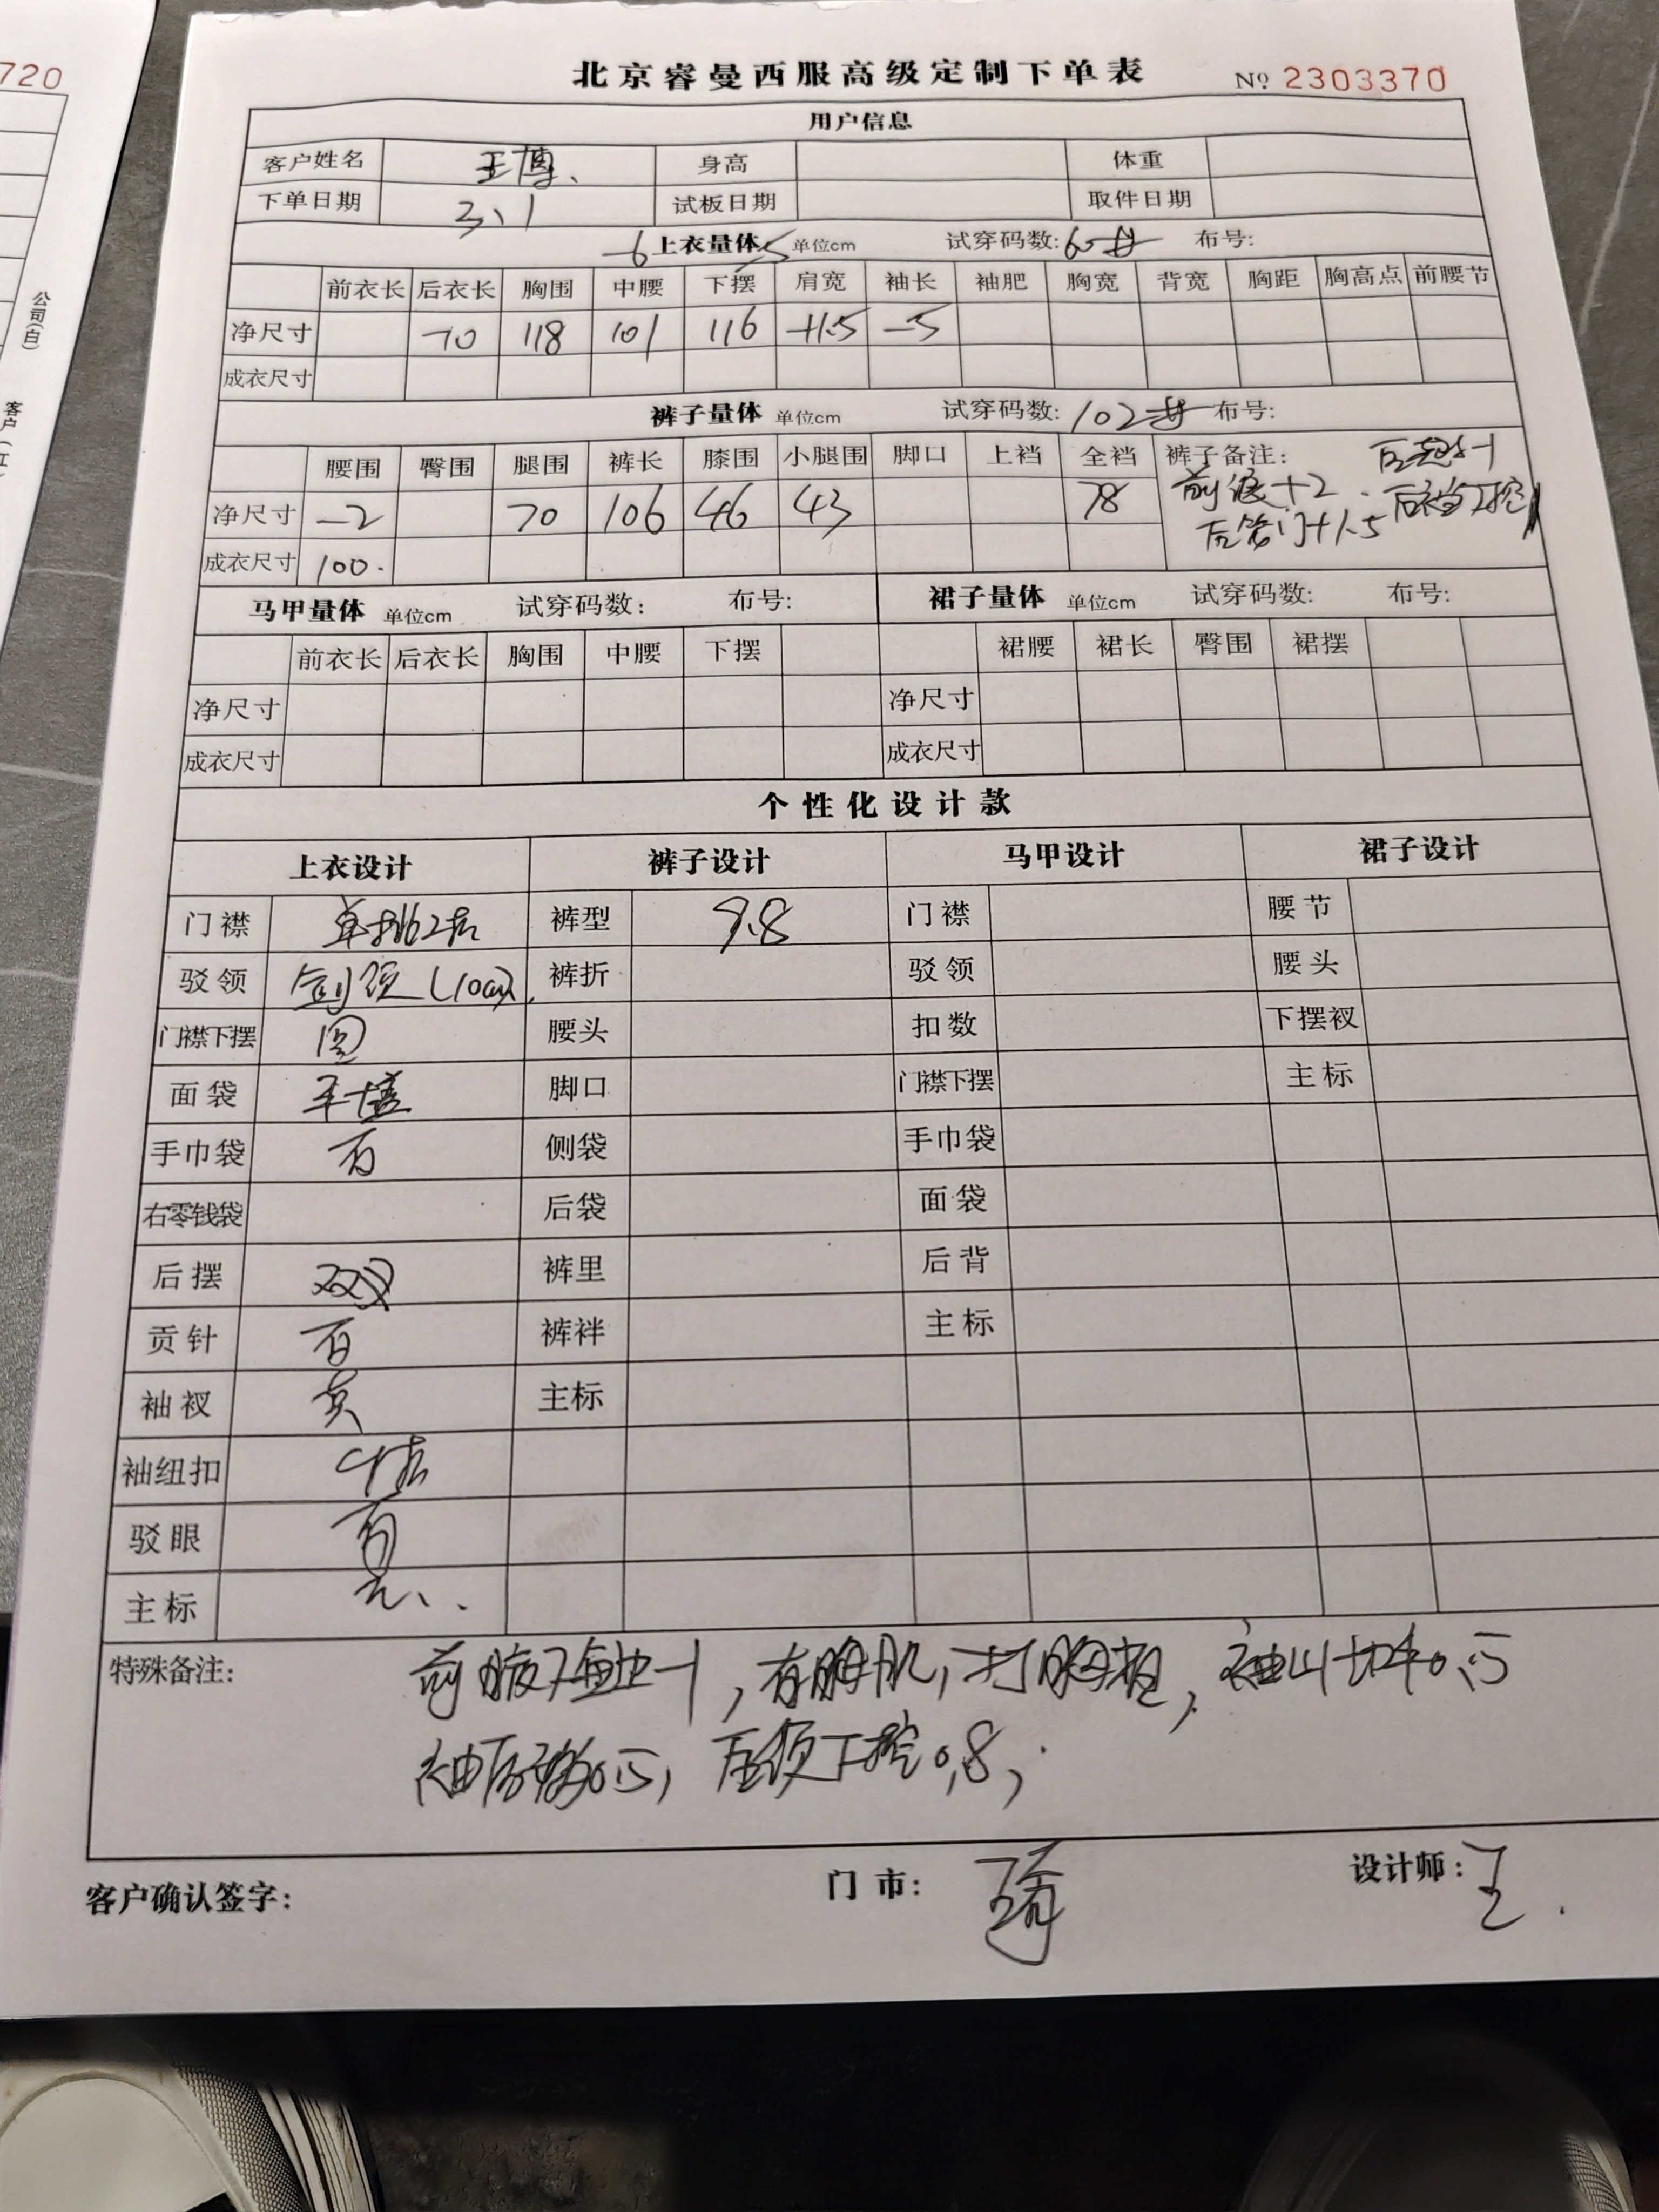 720
公司(白)
客户(红
北京睿曼西服高级定制下单表 № 2303370
用户信息
客户姓名 王博、 身高 体重
下单日期 3、1 试板日期 取件日期
-6 上衣量体 -5 单位cm 试穿码数: 60# 布号:
前衣长 后衣长 胸围 中腰 下摆 肩宽 袖长 袖肥 胸宽 背宽 胸距 胸高点 前腰节
净尺寸 70 118 101 116 +1.5 -5
成衣尺寸
裤子量体 单位cm 试穿码数: 102# 布号:
腰围 臀围 腿围 裤长 膝围 小腿围 脚口 上裆 全裆 裤子备注: -1
净尺寸 -2 70 106 46 43 78 前浪+2
+1.5
成衣尺寸 100.
马甲量体 单位cm 试穿码数: 布号: 裙子量体 单位cm 试穿码数: 布号:
前衣长 后衣长 胸围 中腰 下摆 裙腰 裙长 臀围 裙摆
净尺寸 净尺寸
成衣尺寸 成衣尺寸
个性化设计款
上衣设计 裤子设计 马甲设计 裙子设计
门襟 单排2扣 裤型 9.8 门襟 腰节
驳领 剑领(10cm) 裤折 驳领 腰头
门襟下摆 圆 腰头 扣数 下摆衩
面袋 平 脚口 门襟下摆 主标
手巾袋 有 侧袋 手巾袋
右零钱袋 后袋 面袋
后摆 双叉 裤里 后背
贡针 有 裤袢 主标
袖衩 真 主标
袖纽扣 4扣
驳眼 有
主标 元、.
特殊备注: 前腹 -1, 有胸肌, 打胸 , 袖山切平0.5
袖后移0.5, 后领下挖0.8,
客户确认签字: 门市: 设计师: 王.